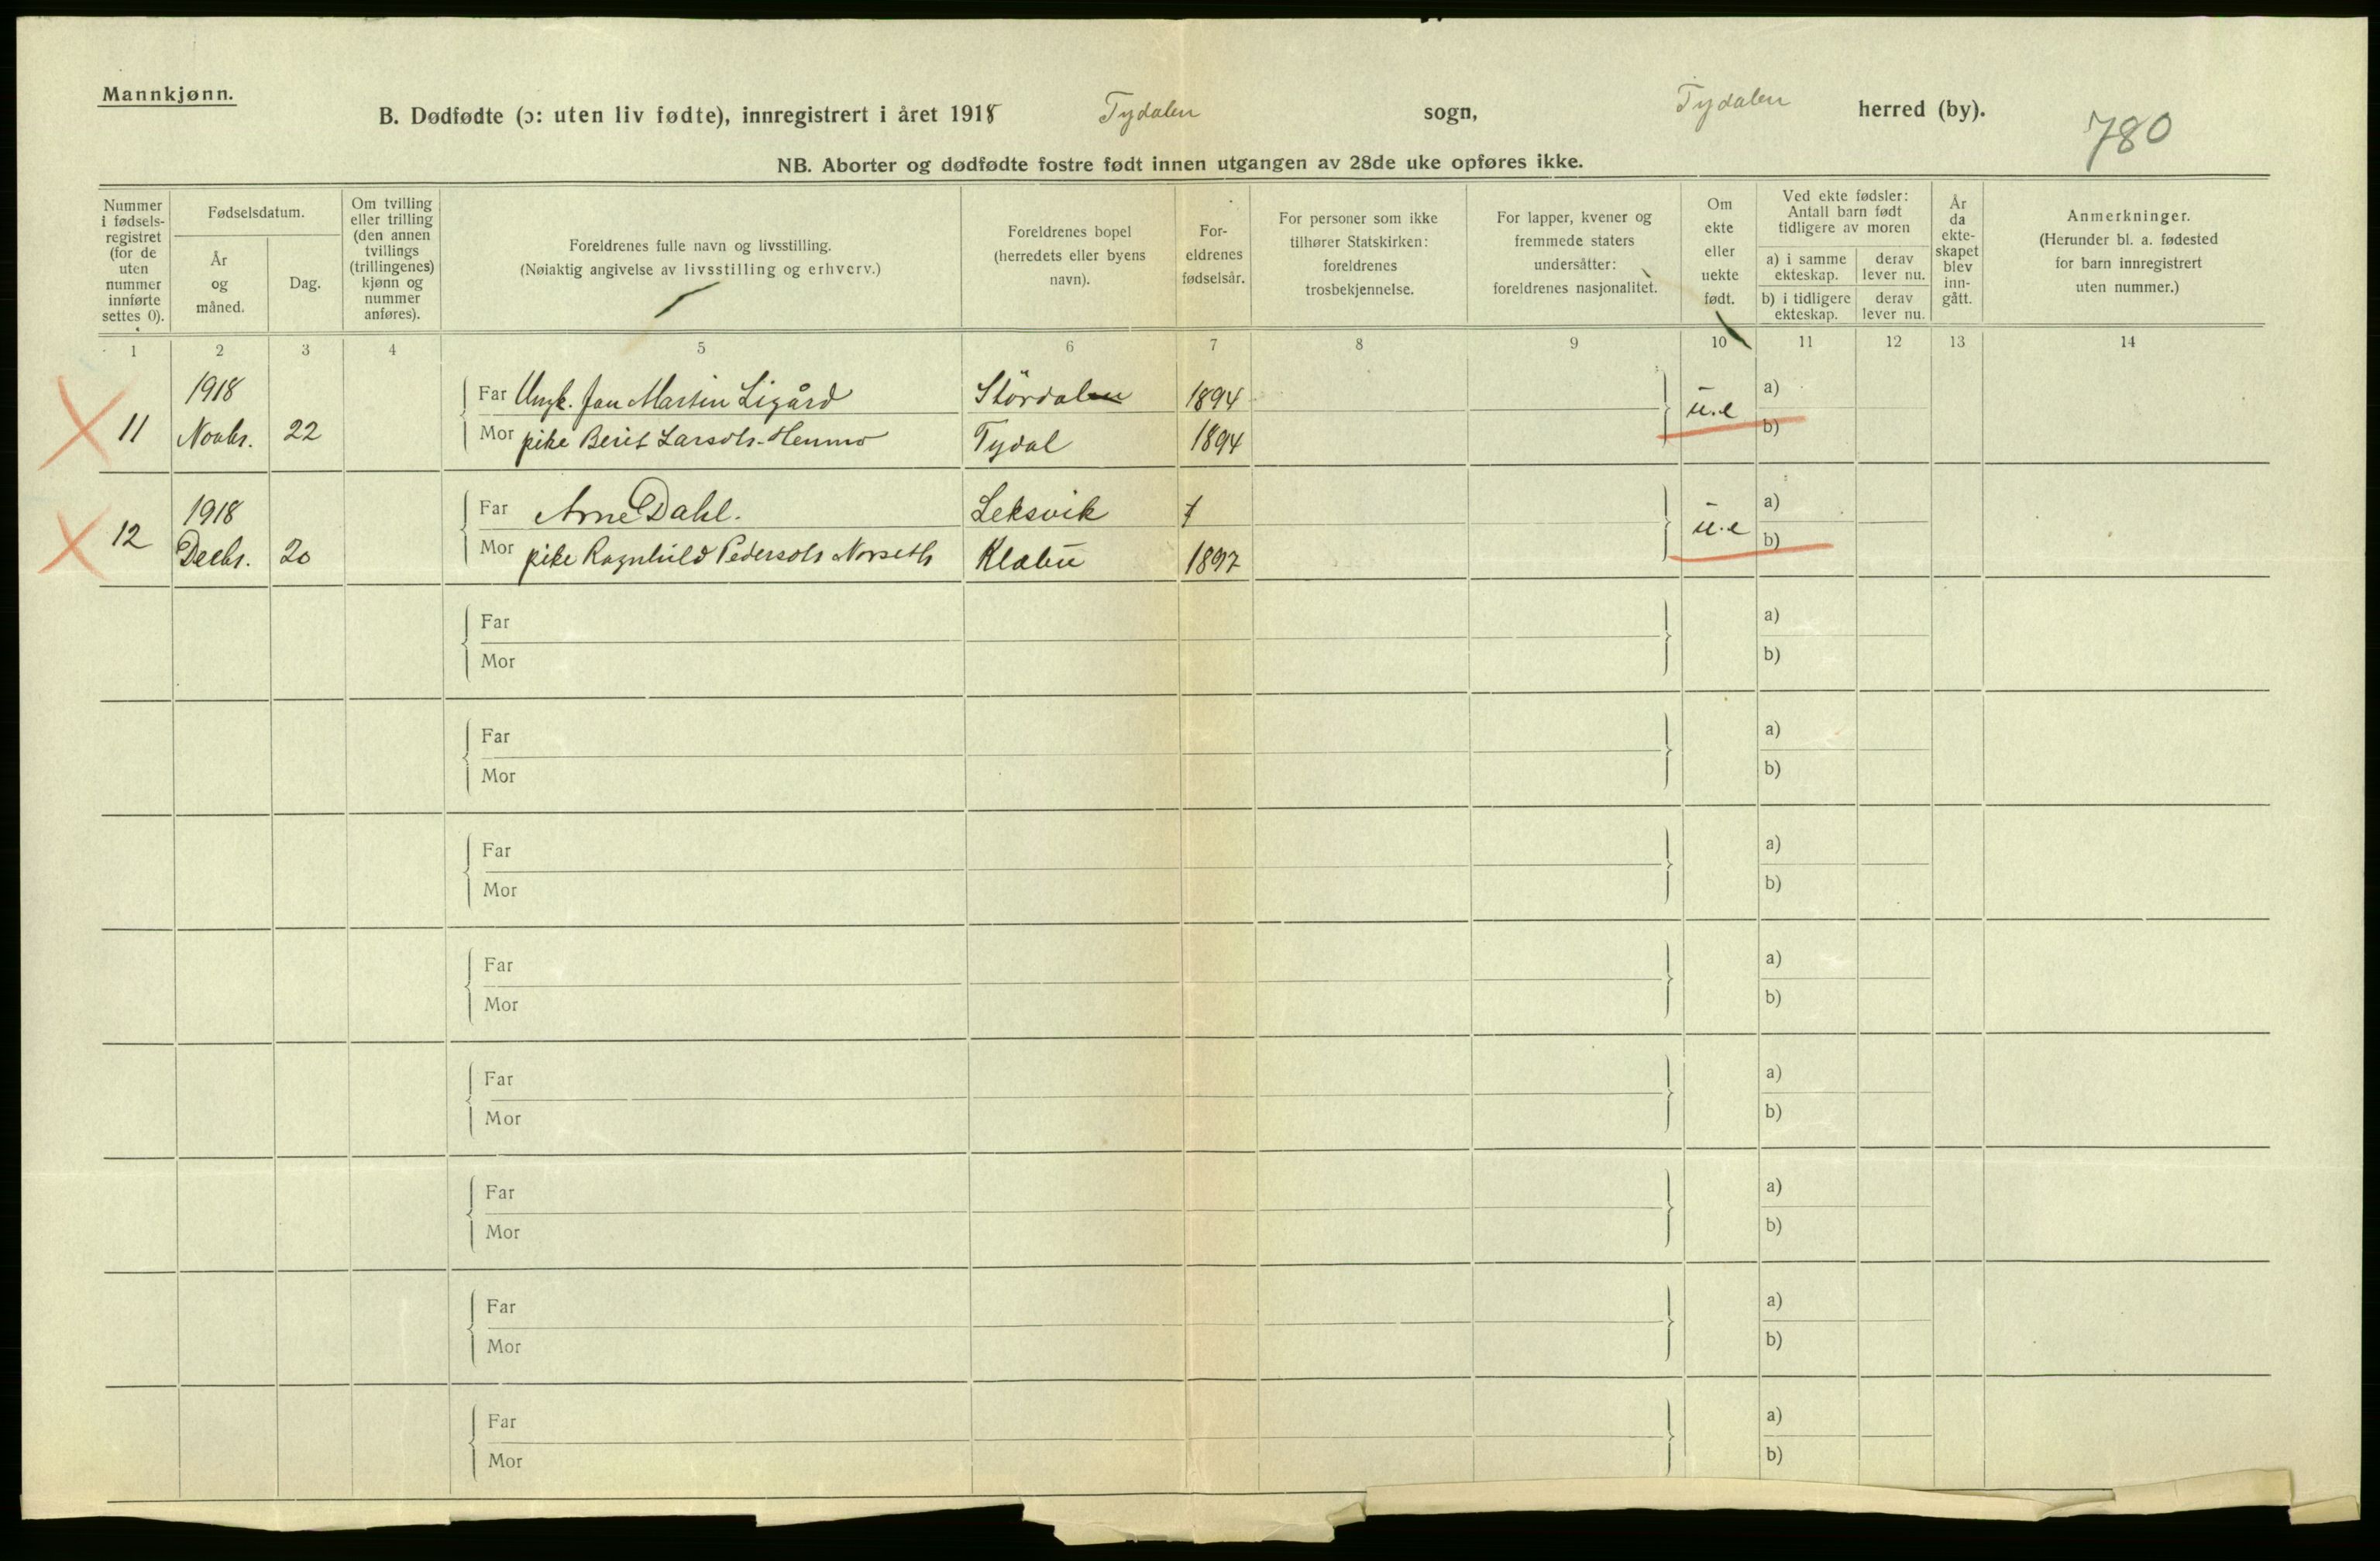 Mannkjønn.
B. Dødfødte (ɔ: uten liv fødte), innregistrert i året 1918 Tydalen sogn, Tydalen herred (by).
780
NB. Aborter og dødfødte fostre født innen utgangen av 28de uke opføres ikke.
Nummer i fødsels-registret (for de uten nummer innførte settes 0).
Fødselsdatum.
År og måned.
Dag.
Om tvilling eller trilling (den annen tvillings (trillingenes) kjønn og nummer anføres).
Foreldrenes fulle navn og livsstilling.
(Nøiaktig angivelse av livsstilling og erhverv.)
Foreldrenes bopel (herredets eller byens navn).
For-eldrenes fødselsår.
For personer som ikke tilhører Statskirken: foreldrenes trosbekjennelse.
For lapper, kvener og fremmede staters undersåtter: foreldrenes nasjonalitet.
Om ekte eller uekte født.
Ved ekte fødsler: Antall barn født tidligere av moren
a) i samme ekteskap.
derav lever nu.
b) i tidligere ekteskap.
derav lever nu.
År da ekte-skapet blev inn-gått.
Anmerkninger.
(Herunder bl. a. fødested for barn innregistrert uten nummer.)
1 2 3 4 5 6 7 8 9 10 11 12 13 14
1918
Far Ungk. Jan Martin Ligård Stördalen 1894 a)
11 Novbr. 22 u.e
Mor pike Berit Larsdtr. Henmo Tydal 1894 b)
1918
Far Arne Dahl. Leksvik a)
12 Decbr. 20 u.e
Mor pike Ragnhild Pedersdtr Norseth Klæbu 1897 b)
Far a)
Mor b)
Far a)
Mor b)
Far a)
Mor b)
Far a)
Mor b)
Far a)
Mor b)
Far a)
Mor b)
Far a)
Mor b)
Far a)
Mor b)